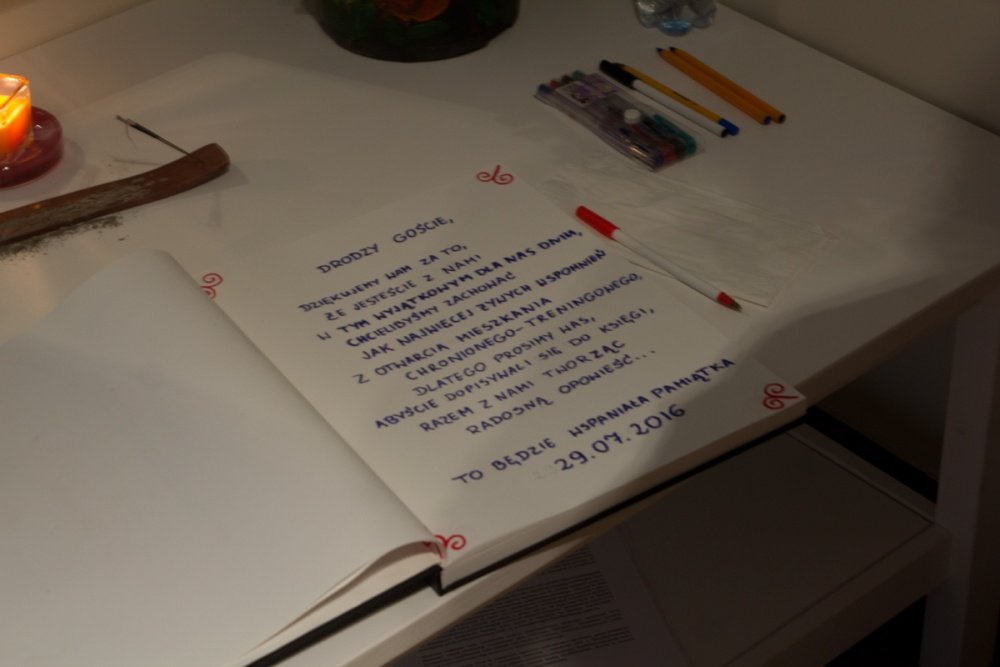 DRODZY GOŚCIE,
DZIĘKUJEMY WAM ZA TO,
ŻE JESTEŚCIE Z NAMI
W TYM WYJĄTKOWYM DLA NAS DNIU,
CHCIELIBYŚMY ZACHOWAĆ
JAK NAJWIĘCEJ ŻYWYCH WSPOMNIEŃ
Z OTWARCIA MIESZKANIA
CHRONIONEGO-TRENINGONEGO,
DLATEGO PROSIMY WAS,
ABYŚCIE DOPISYWALI SIĘ DO KSIĘGI,
RAZEM Z NAMI TWORZĄC
RADOSNĄ OPOWIEŚĆ...
TO BĘDZIE WSPANIAŁA PAMIĄTKA
29.07.2016